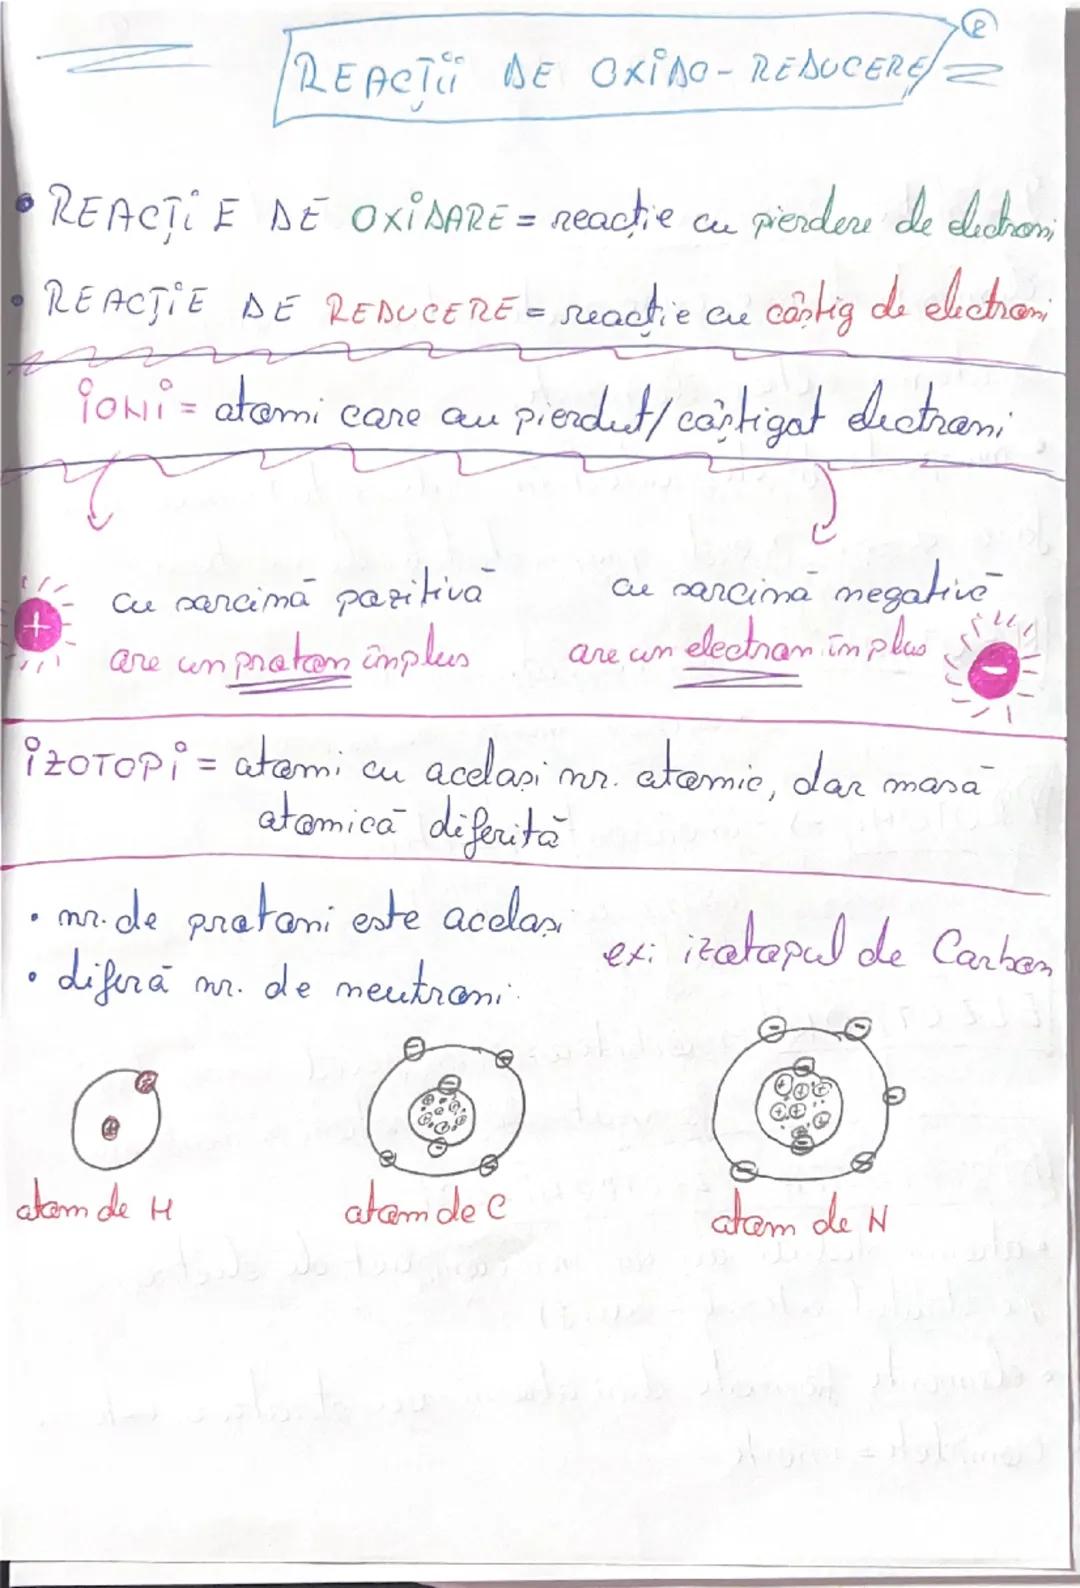 2
REACȚII DE OXIDO-REDUCERE
• REACȚIE DE OXIDARE = reacție cu pierdere de electroni
• REACȚIE DE REDUCERE = reacție cu câștig de electroni
IONI = atomi care au pierdut/câștigat electroni
cu sarcină pozitivă
are un proton în plus
cu sarcină negativă
are un electron în plus
IZOTOPI = atomi cu același nr. atomic, dar masă
atomică diferită
• nr. de protoni este același
• diferă nr. de neutroni.
ex: izotopul de Carbon
atom de H
atom de C
atom de N